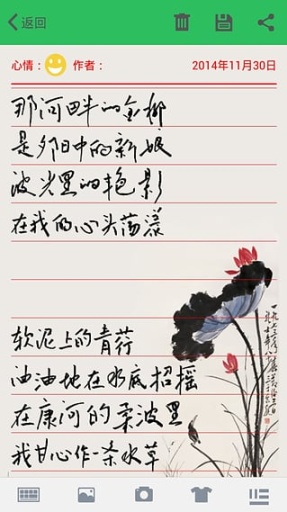 返回
心情： 作者： 2014年11月30日
那河畔的金柳
是夕阳中的新娘
波光里的艳影
在我的心头荡漾
软泥上的青荇
油油地在水底招摇
在康河的柔波里
我甘心作一条水草